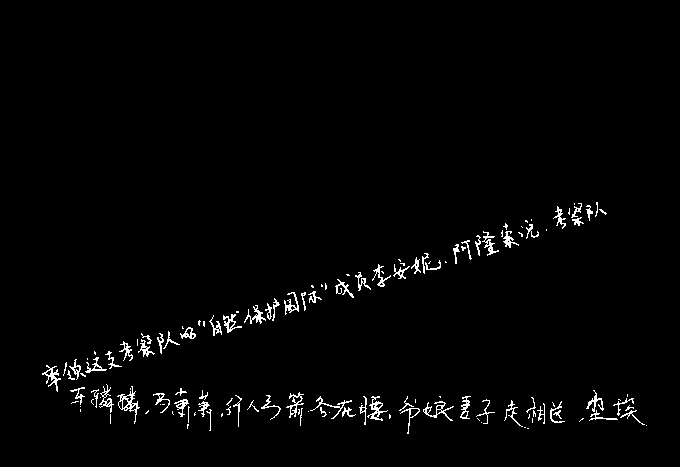 率领这支考察队的“自然保护国际”成员李安妮.阿隆索说,考察队
车辚辚,马萧萧,行人弓箭各在腰,爷娘妻子走相送,尘埃